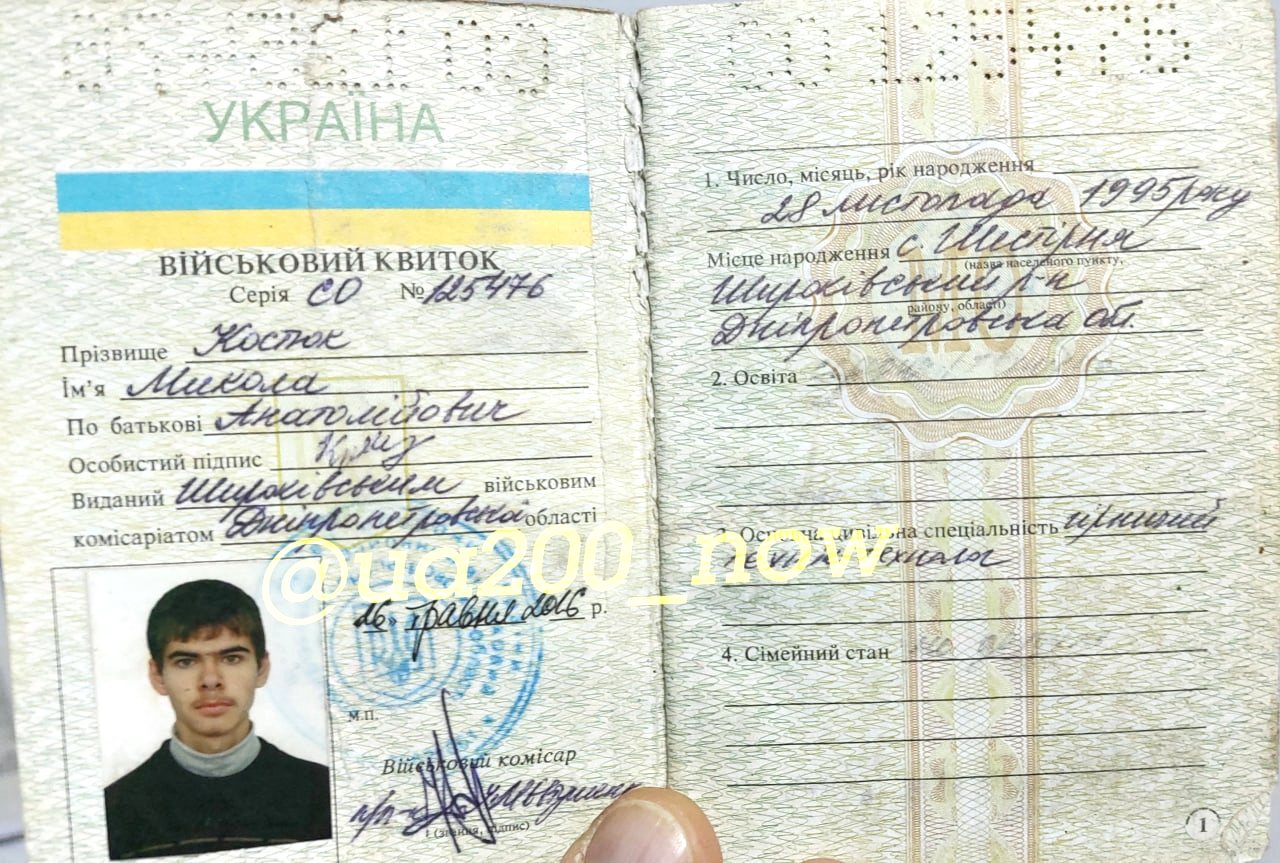 УКРАЇНА
ВІЙСЬКОВИЙ КВИТОК
Серія СО № 125476
Прізвище Костюк
Ім'я Микола
По батькові Анатолійович
Особистий підпис
Виданий Широківським військовим
комісаріатом Дніпропетровської області
26 травня 2016 р.
м.п.
Військовий комісар
(звання, підпис)
СО 125476
1. Число, місяць, рік народження
28 листопада 1995 року
Місце народження с. Шестірня
(назва населеного пункту,
Широківський р-н
району, області)
Дніпропетровська обл.
2. Освіта
3. Основна цивільна спеціальність гірничий
технік технолог
4. Сімейний стан
1
@ua200_now